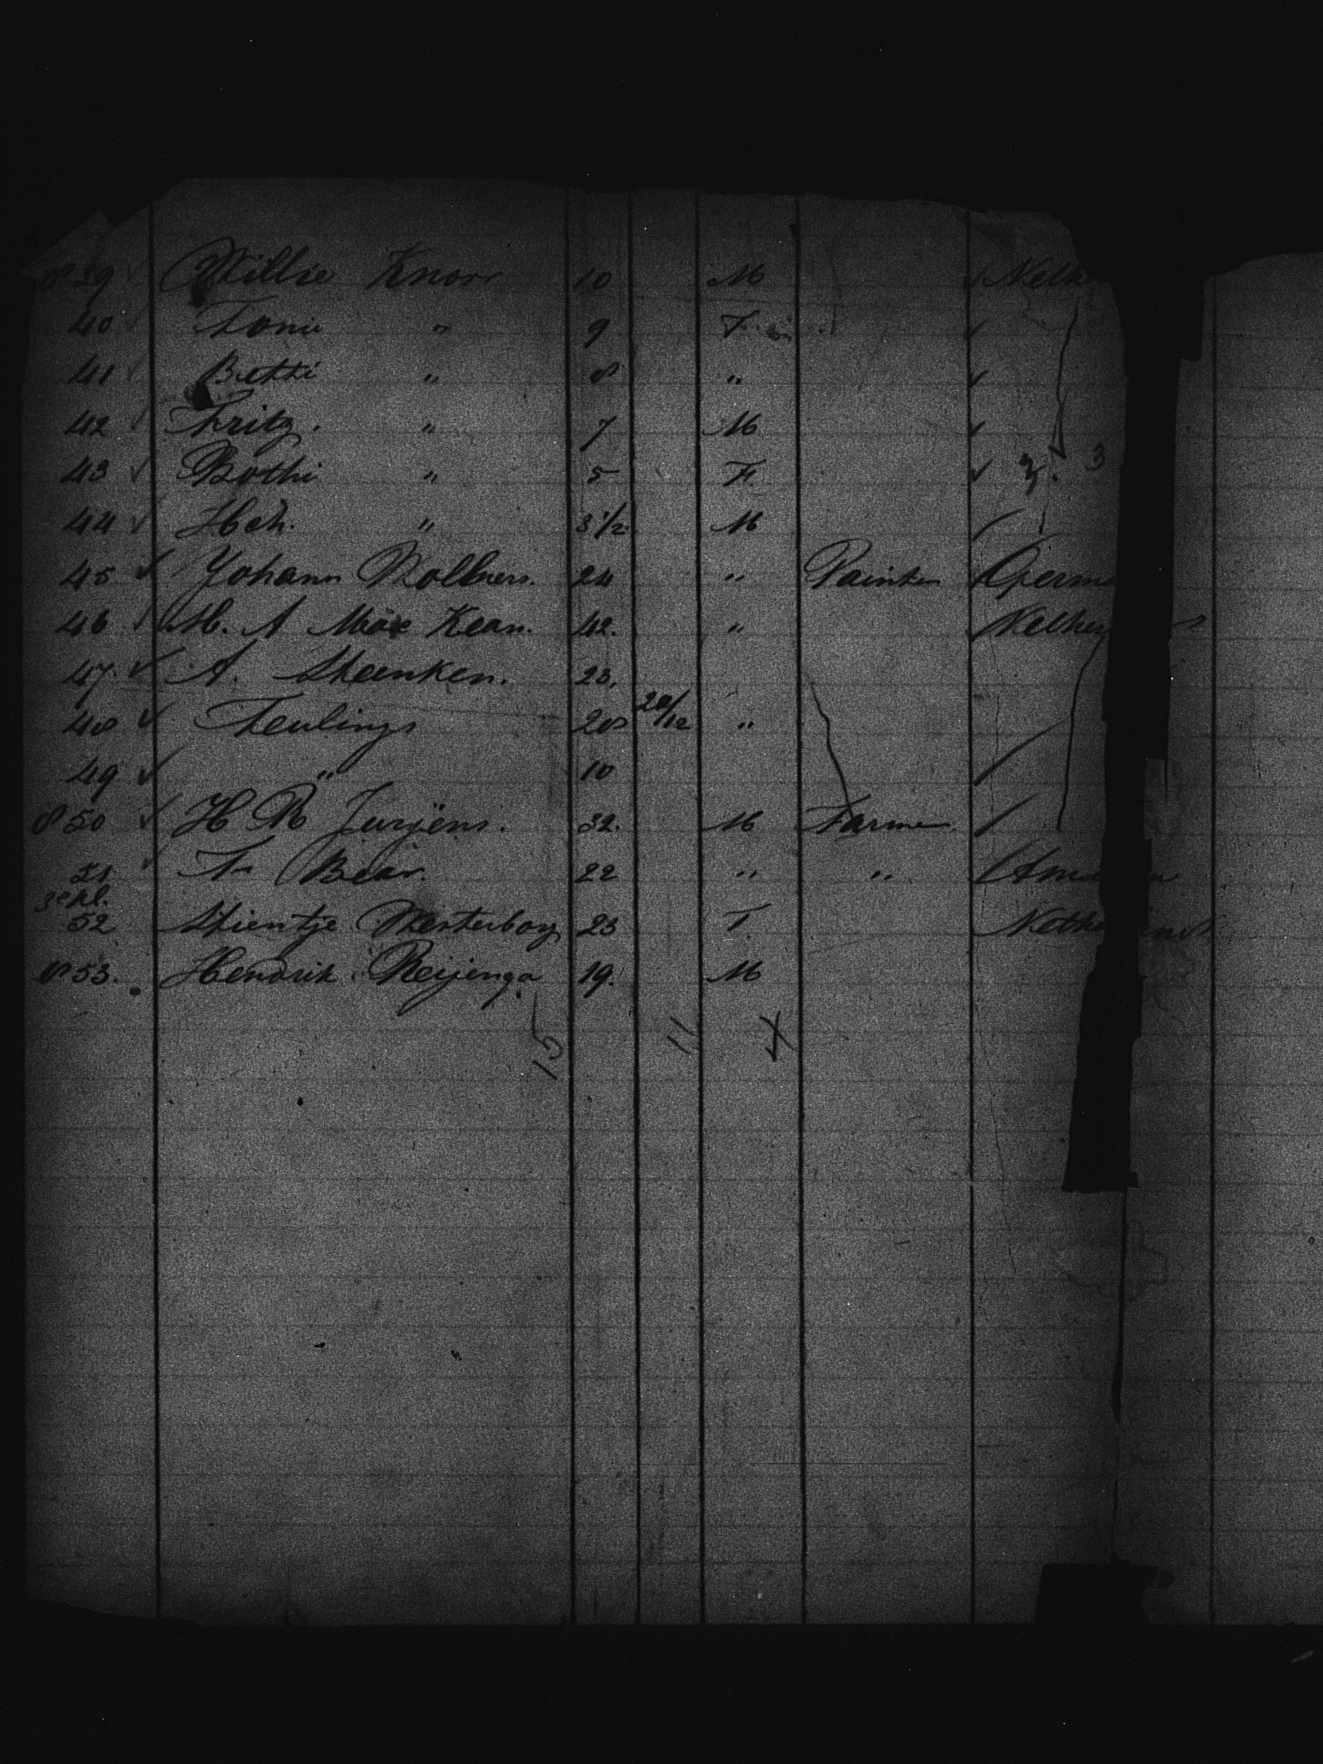 839 ✓ Willie Knorr 10 M ✓ Neth
40 ✓ Toni " 9 F ✓
41 ✓ Betti " 8 " ✓
42 ✓ Fritz. " 7 M ✓
43 ✓ Bothi " 5 F ✓ 3
44 ✓ Hch. " 3 1/2 M
45 ✓ Johann Bollners. 24 " Painter Germa
46 ✓ M. A Kean. 42. " Nether s
47 ✓ A. Steenken. 23.
48 ✓ Teulings 28 20/12 "
49 ✓ " 10
850 ✓ H R Jurjens. 32. M Farmer
51 ✓ Fr Bear. 22 " " Ame a
3e kl.
52 Stientje Westerboy 23 F. Nethe ands
853. Hendrik Reijenga 19. M
15 11 4